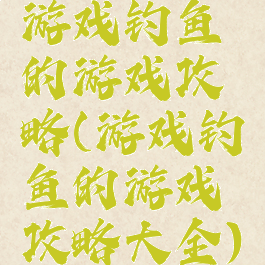 游戏钓鱼
的游戏攻
略(游戏钓
鱼的游戏
攻略大全)